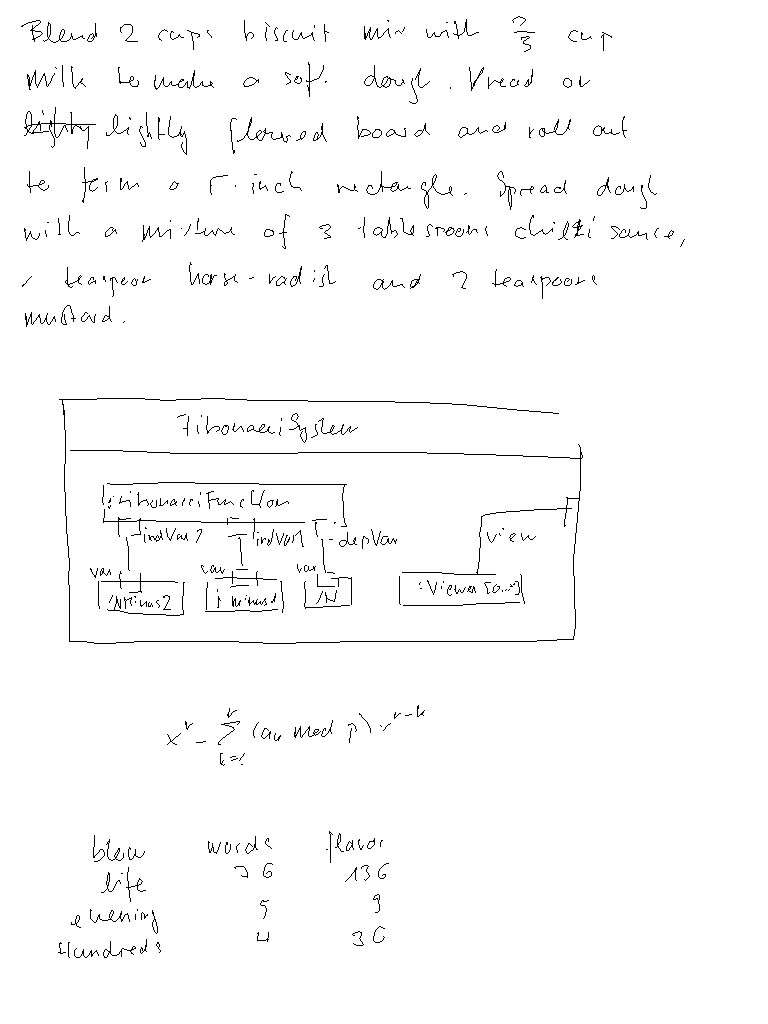 Blend 2 cups biscuit mix with 2/3 cup
milk to make a soft dough. Knead on
lightly floured board and roll out
to form a 5-inch rectangle. Spread dough
with a mixture of 3 tablespoons chili sauce,
teaspoon horse-radish and 2 teaspoons
mustard.
FibonacciSystem
:FibonacciFunction
indVar2 indVar1 depVar view
var var var
:NMinus2 :NMinus1 :N :Viewer [0...*]
x^r - ∑_{k=1}^{r} (a_k mod p) x^{r-k}
blew words flavor
life 76 136
evening 5 9
Hundreds 4 36